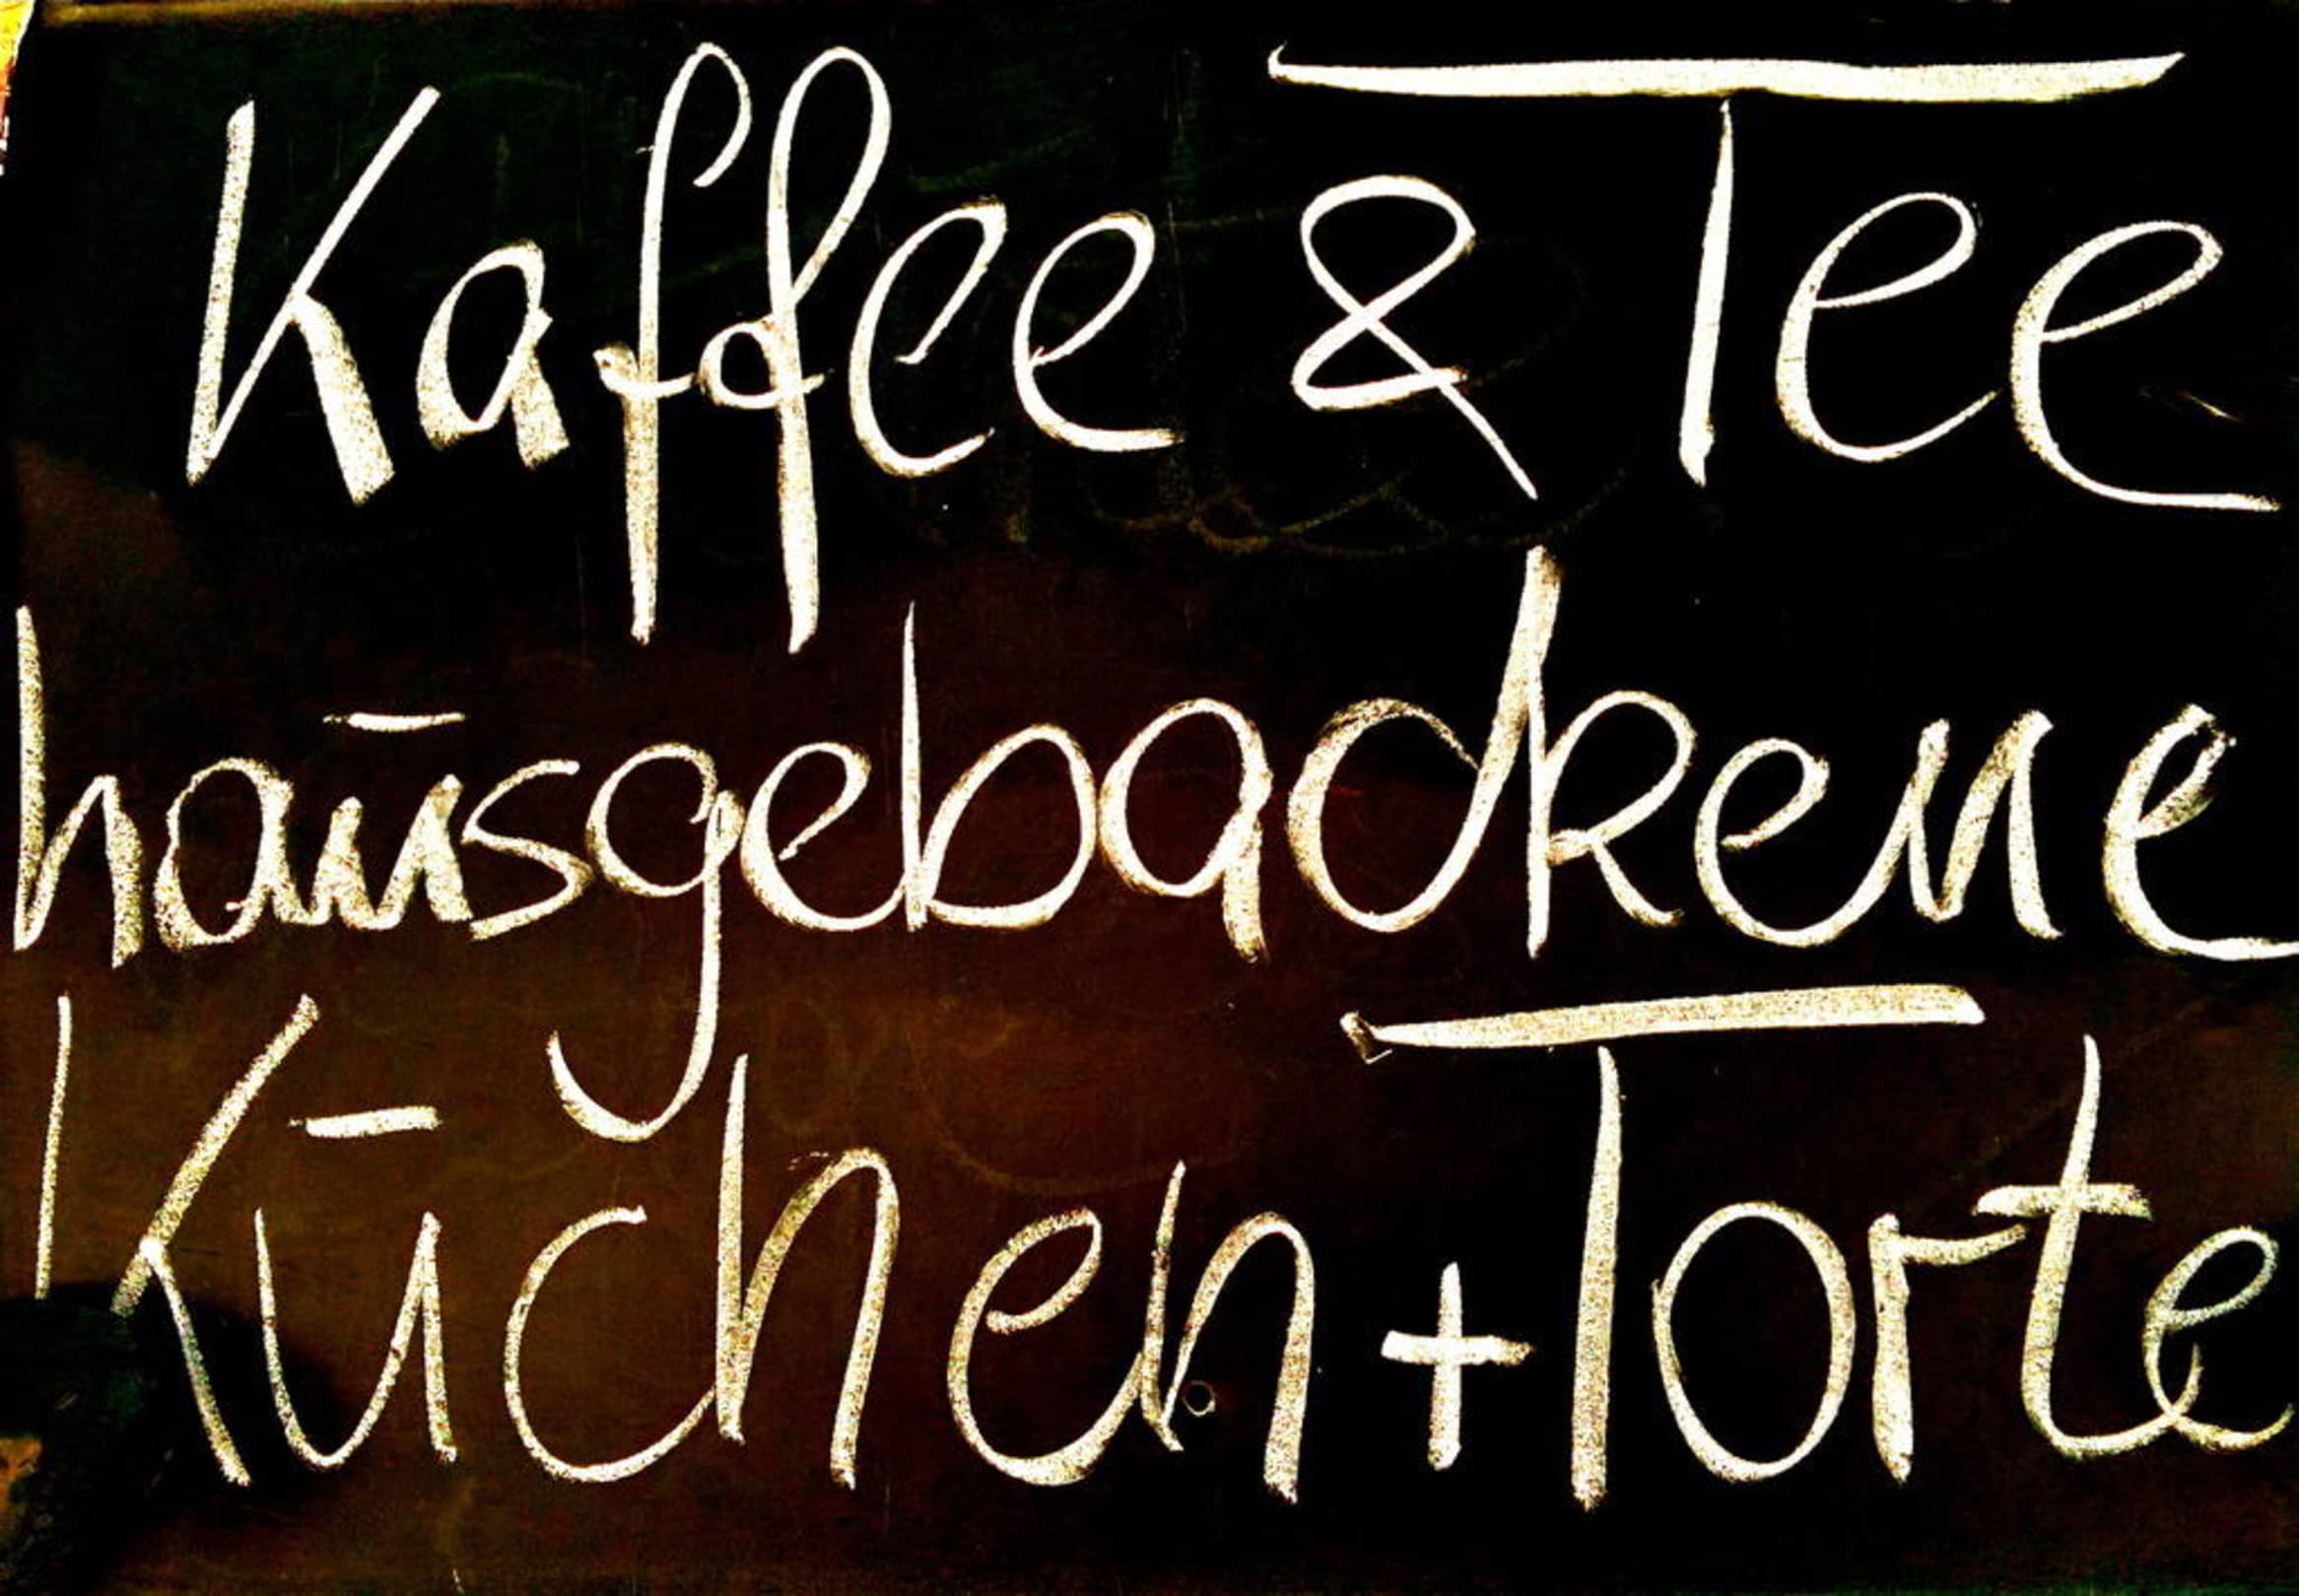 Kaffee & Tee
hausgebackene
Kuchen + Torte